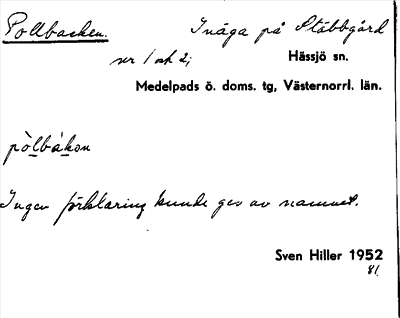 Pollbacken. Inäga på Stöbbgård
nr 1 och 2;
Hässjö sn.
Medelpads ö. doms. tg, Västernorrl. län.
pòlbákɑn
Ingen förklaring kunde gev av namnet.
Sven Hiller 1952
81.